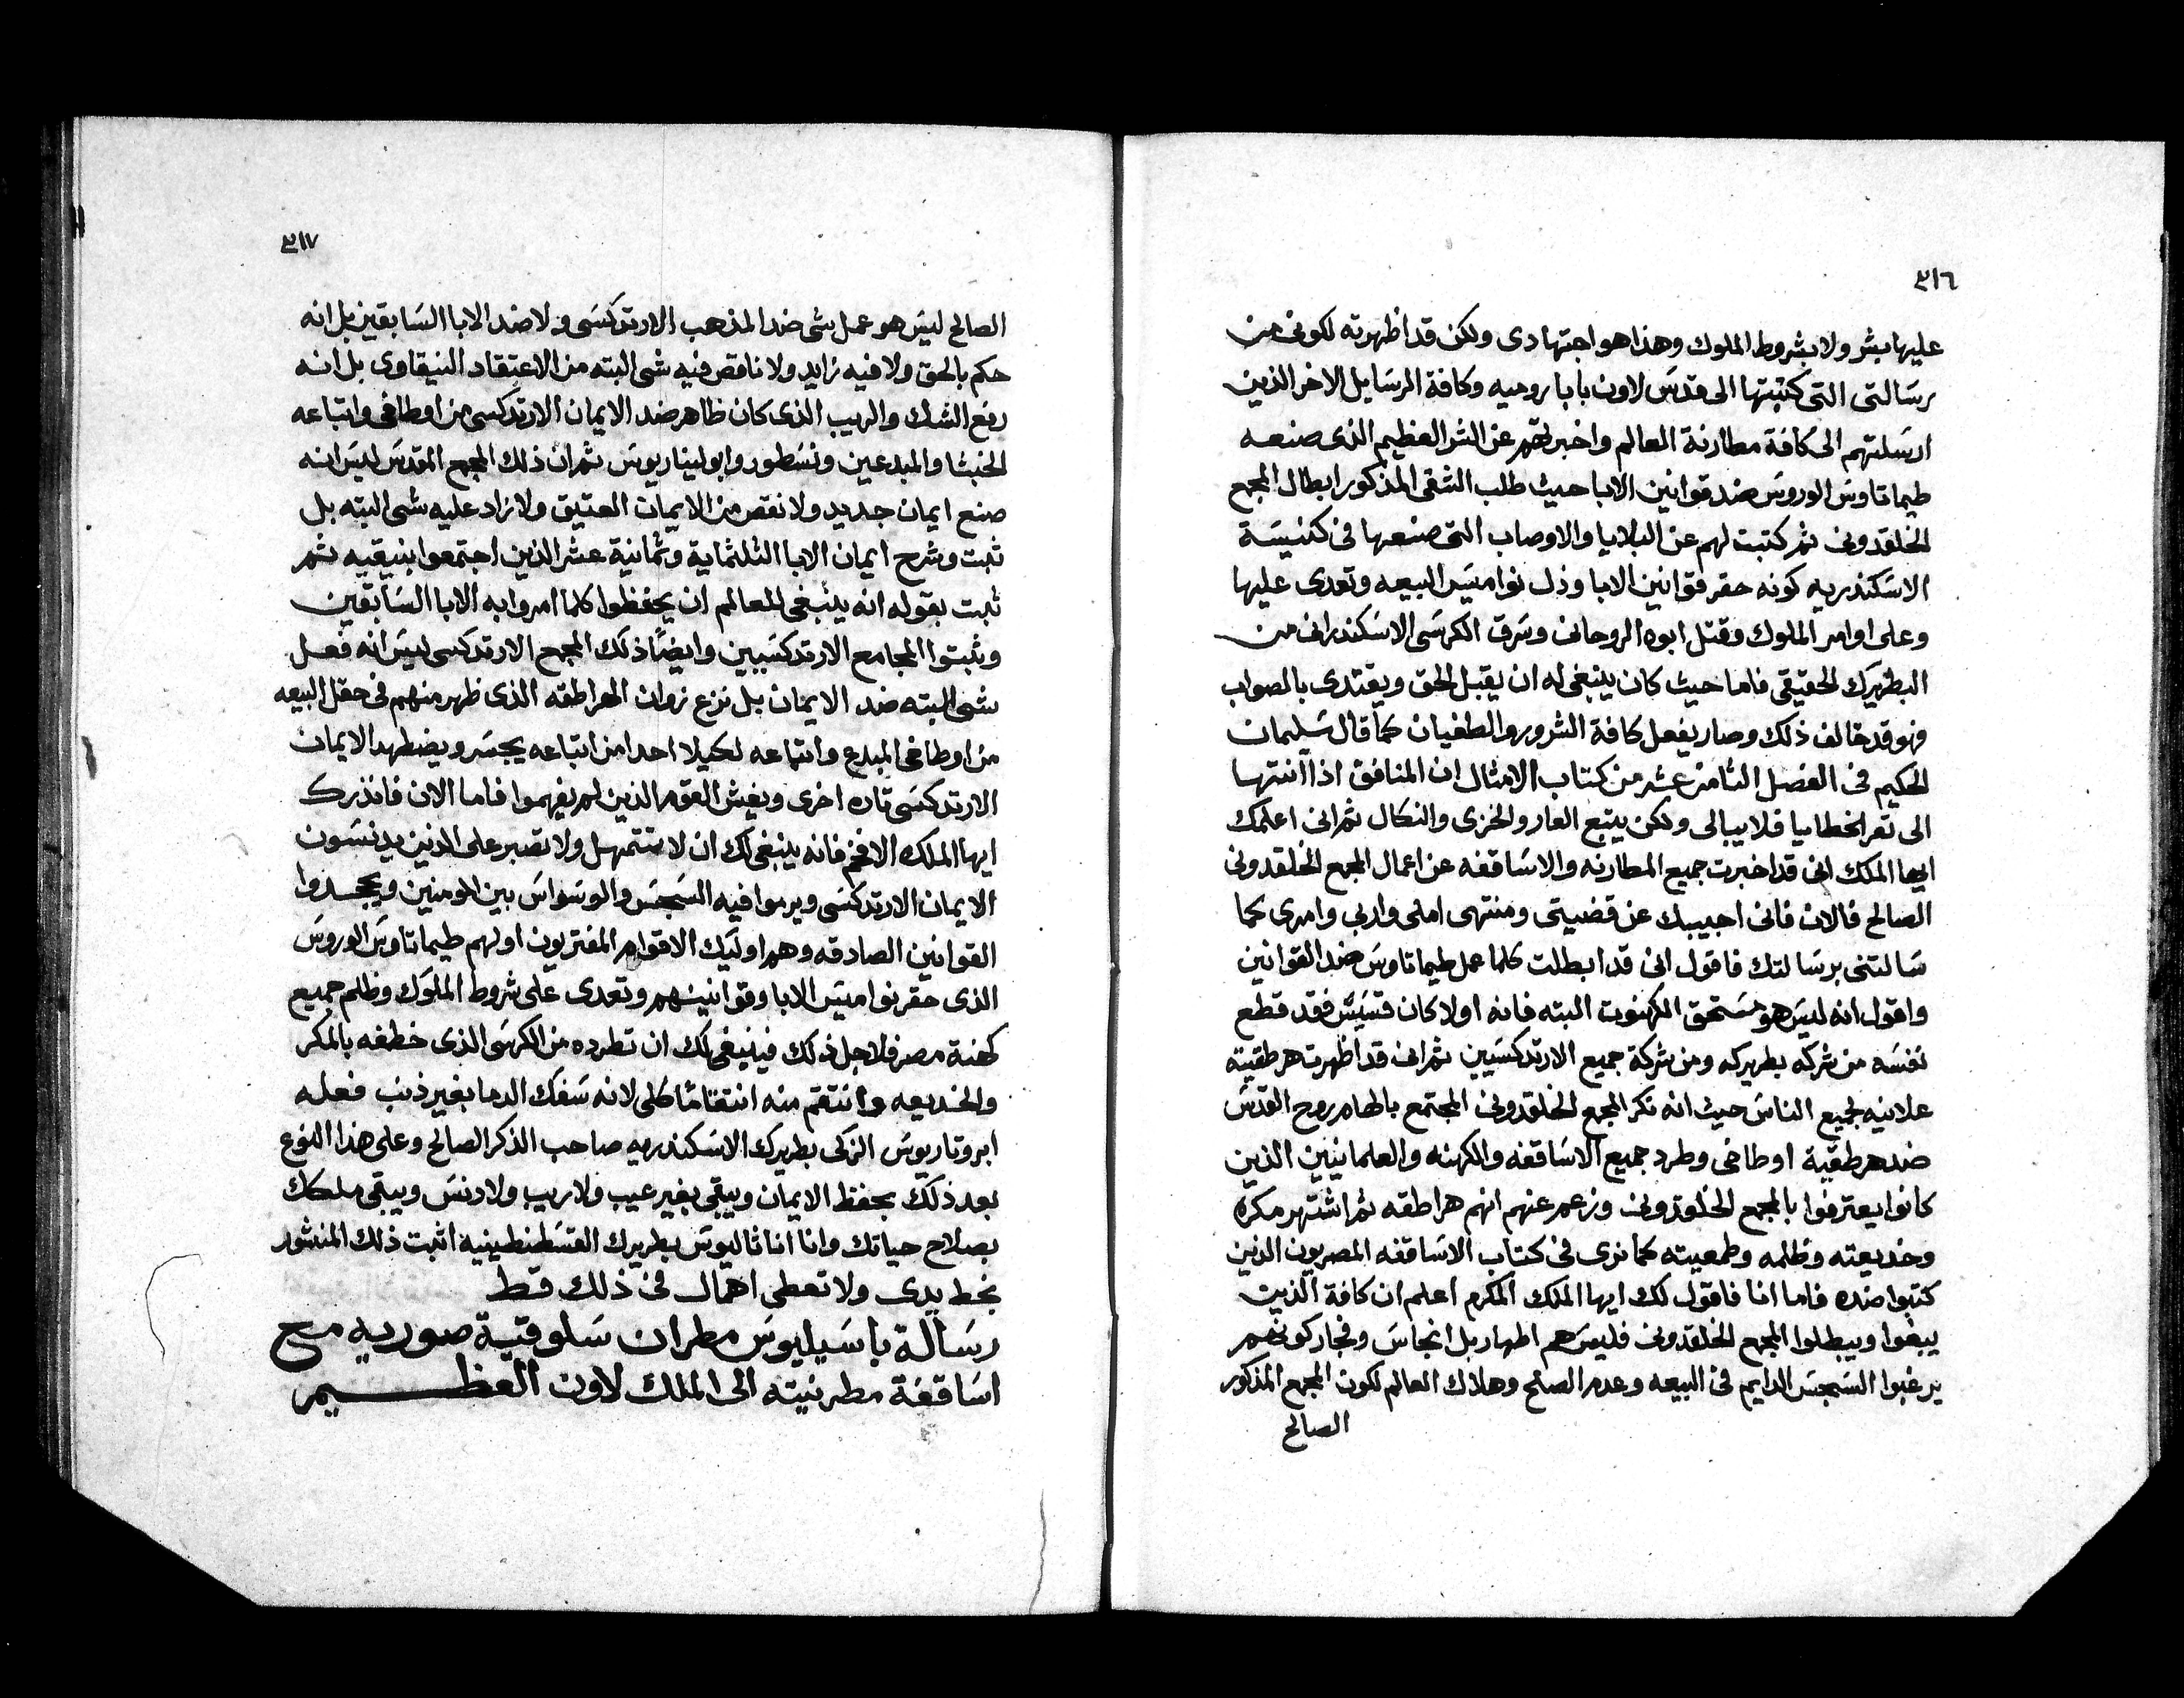 ٣١٦
عليها بشر ولا بشروط الملوك وهذا هو اجتهادى ولكن قد اظهرته لكونى من
رسالتى التى كتبتها الى قدس لاون بابا روميه وكافة الرسايل الاخر الذين
ارسلتهم الى كافة مطارنة العالم واخبرتهم عن الشر العظيم الذى صنعه
طيماتاوس الوروس ضد قوانين الابا حيث طلب الشقى المذكور ابطال المجمع
الخلقدونى ثم كتبت لهم عن البلايا والاوصاب التى صنعها فى كنيسة
الاسكندريه كونه حقر قوانين الابا وذل نواميس البيعه وتعدى عليها
وعلى اوامر الملوك وقتل ابوه الروحانى وسرق الكرسى الاسكندرانى من
البطريرك الحقيقى فاما حيث كان ينبغى له ان يقبل الحق ويقتدى بالصواب
فهو قد خالف ذلك وصار يفعل كافة الشرور والطغيان كما قال سليمان
الحكيم فى الفصل الثامن عشر من كتاب الامثال ان المنافق اذا انتها
الى تعر الخطايا فلا يبالى ولكن يتبع العار والخزى والنكال ثم انى اعلمك
ايها الملك انى قد اخبرت جميع المطارنه والاساقفه عن اعمال المجمع الخلقدونى
الصالح فالان فانى اجيبك عن قضيتى ومنتهى املى واربى وامرى كما
سالتنى برسالتك فاقول انى قد ابطلت كلما عمل طيماتاوس ضد القوانين
واقول انه ليس هو مستحق الكهنوت البته فانه اولا كان قسيس فقد قطع
نفسه من شركه بطريركه ومن شركة جميع الارتدكسيين ثم انى قد اظهرت هرطقيته
علانيه لجميع الناس حيث انه نكر المجمع الخلقدونى المجتمع بالهام روح القدس
ضد هرطقية اوطاخى وطرد جميع الاساقفه والكهنه والعلمانيين الذين
كانوا يعترفوا بالمجمع الخلقدونى وزعم عنهم انهم هراطقه ثم اشتهر مكره
وخديعته وظلمه وطغيته كما نرى فى كتاب الاساقفه المصريون الذين
كتبوا ضده فاما انا فاقول لك ايها الملك المكرم اعلم ان كافة الذين
يبغوا ويبطلوا المجمع الخلقدونى فليس هم اطهار بل انجاس وفجار كونهم
يرغبوا السجس الدايم فى البيعه وعدم الصلح وهلاك العالم لكون المجمع المذكور
الصالح
٣١٧
الصالح ليس هو عمل شى ضد المذهب الارتدكسى ولا ضد الابا السابقين بل انه
حكم بالحق ولا فيه زايد ولا ناقص فيه شى البته من الاعتقاد النيقاوى بل انه
رفع الشك والريب الذى كان ظاهر ضد الايمان الارتدكسى من اوطاخى واتباعه
الخبثا والمبدعين ونسطور وابوليناريوس ثم ان ذلك المجمع المقدس ليس انه
صنع ايمان جديد ولا نقص من الايمان العتيق ولا زاد عليه شى البته بل
ثبت وشرح ايمان الابا الثلثماية وثمانية عشر الذين اجتمعوا بنيقيه ثم
ثبت بقوله انه ينبغى للعالم ان يحفظوا كلما امروا به الابا السابقين
وثبتوا المجامع الارتدكسيين وايضًا ذلك المجمع الارتدكسى ليس انه فعل
شى البته ضد الايمان بل نزع زوان الهراطقه الذى ظهر منهم فى حقل البيعه
من اوطاخى المبدع واتباعه لكيلا احدا من اتباعه يجسر ويضطهد الايمان
الارتدكسى تاره اخرى ويغش القوم الذين لم يفهموا فاما الان فانذرك
ايها الملك الافخم فانه ينبغى لك ان لا تتمهل ولا تصبر على الذين يدنسون
الايمان الارتدكسى ويرموا فيه السجس والوسواس بين المومنين ويجحدوا
القوانين الصادقه وهم اوليك الاقوام المفتريون اولهم طيماتاوس الوروس
الذى حقر نواميس الابا وقوانينهم وتعدى على شروط الملوك وظلم جميع
كهنة مصر فلاجل ذلك فينبغى لك ان تطرده من الكرسى الذى خطفه بالمكر
والخديعه وانتقم منه انتقامًا كلى لانه سفك الدما بغير ذنب فعله
ابروتاريوس الزكى بطريرك الاسكندريه صاحب الذكر الصالح وعلى هذا النوع
بعد ذلك يحفظ الايمان ويبقى بغير عيب ولا ريب ولا دنس ويبقى ملكك
بصلاح حياتك وانا اناثاليوس بطريرك القسطنطينيه اثبت ذلك المنشور
بخط يدى ولا تعطى اهمال فى ذلك قط
رسالة باسيليوس مطران سلوقية صوريه مع
اساقفة مطرنيته الى الملك لاون العظيم